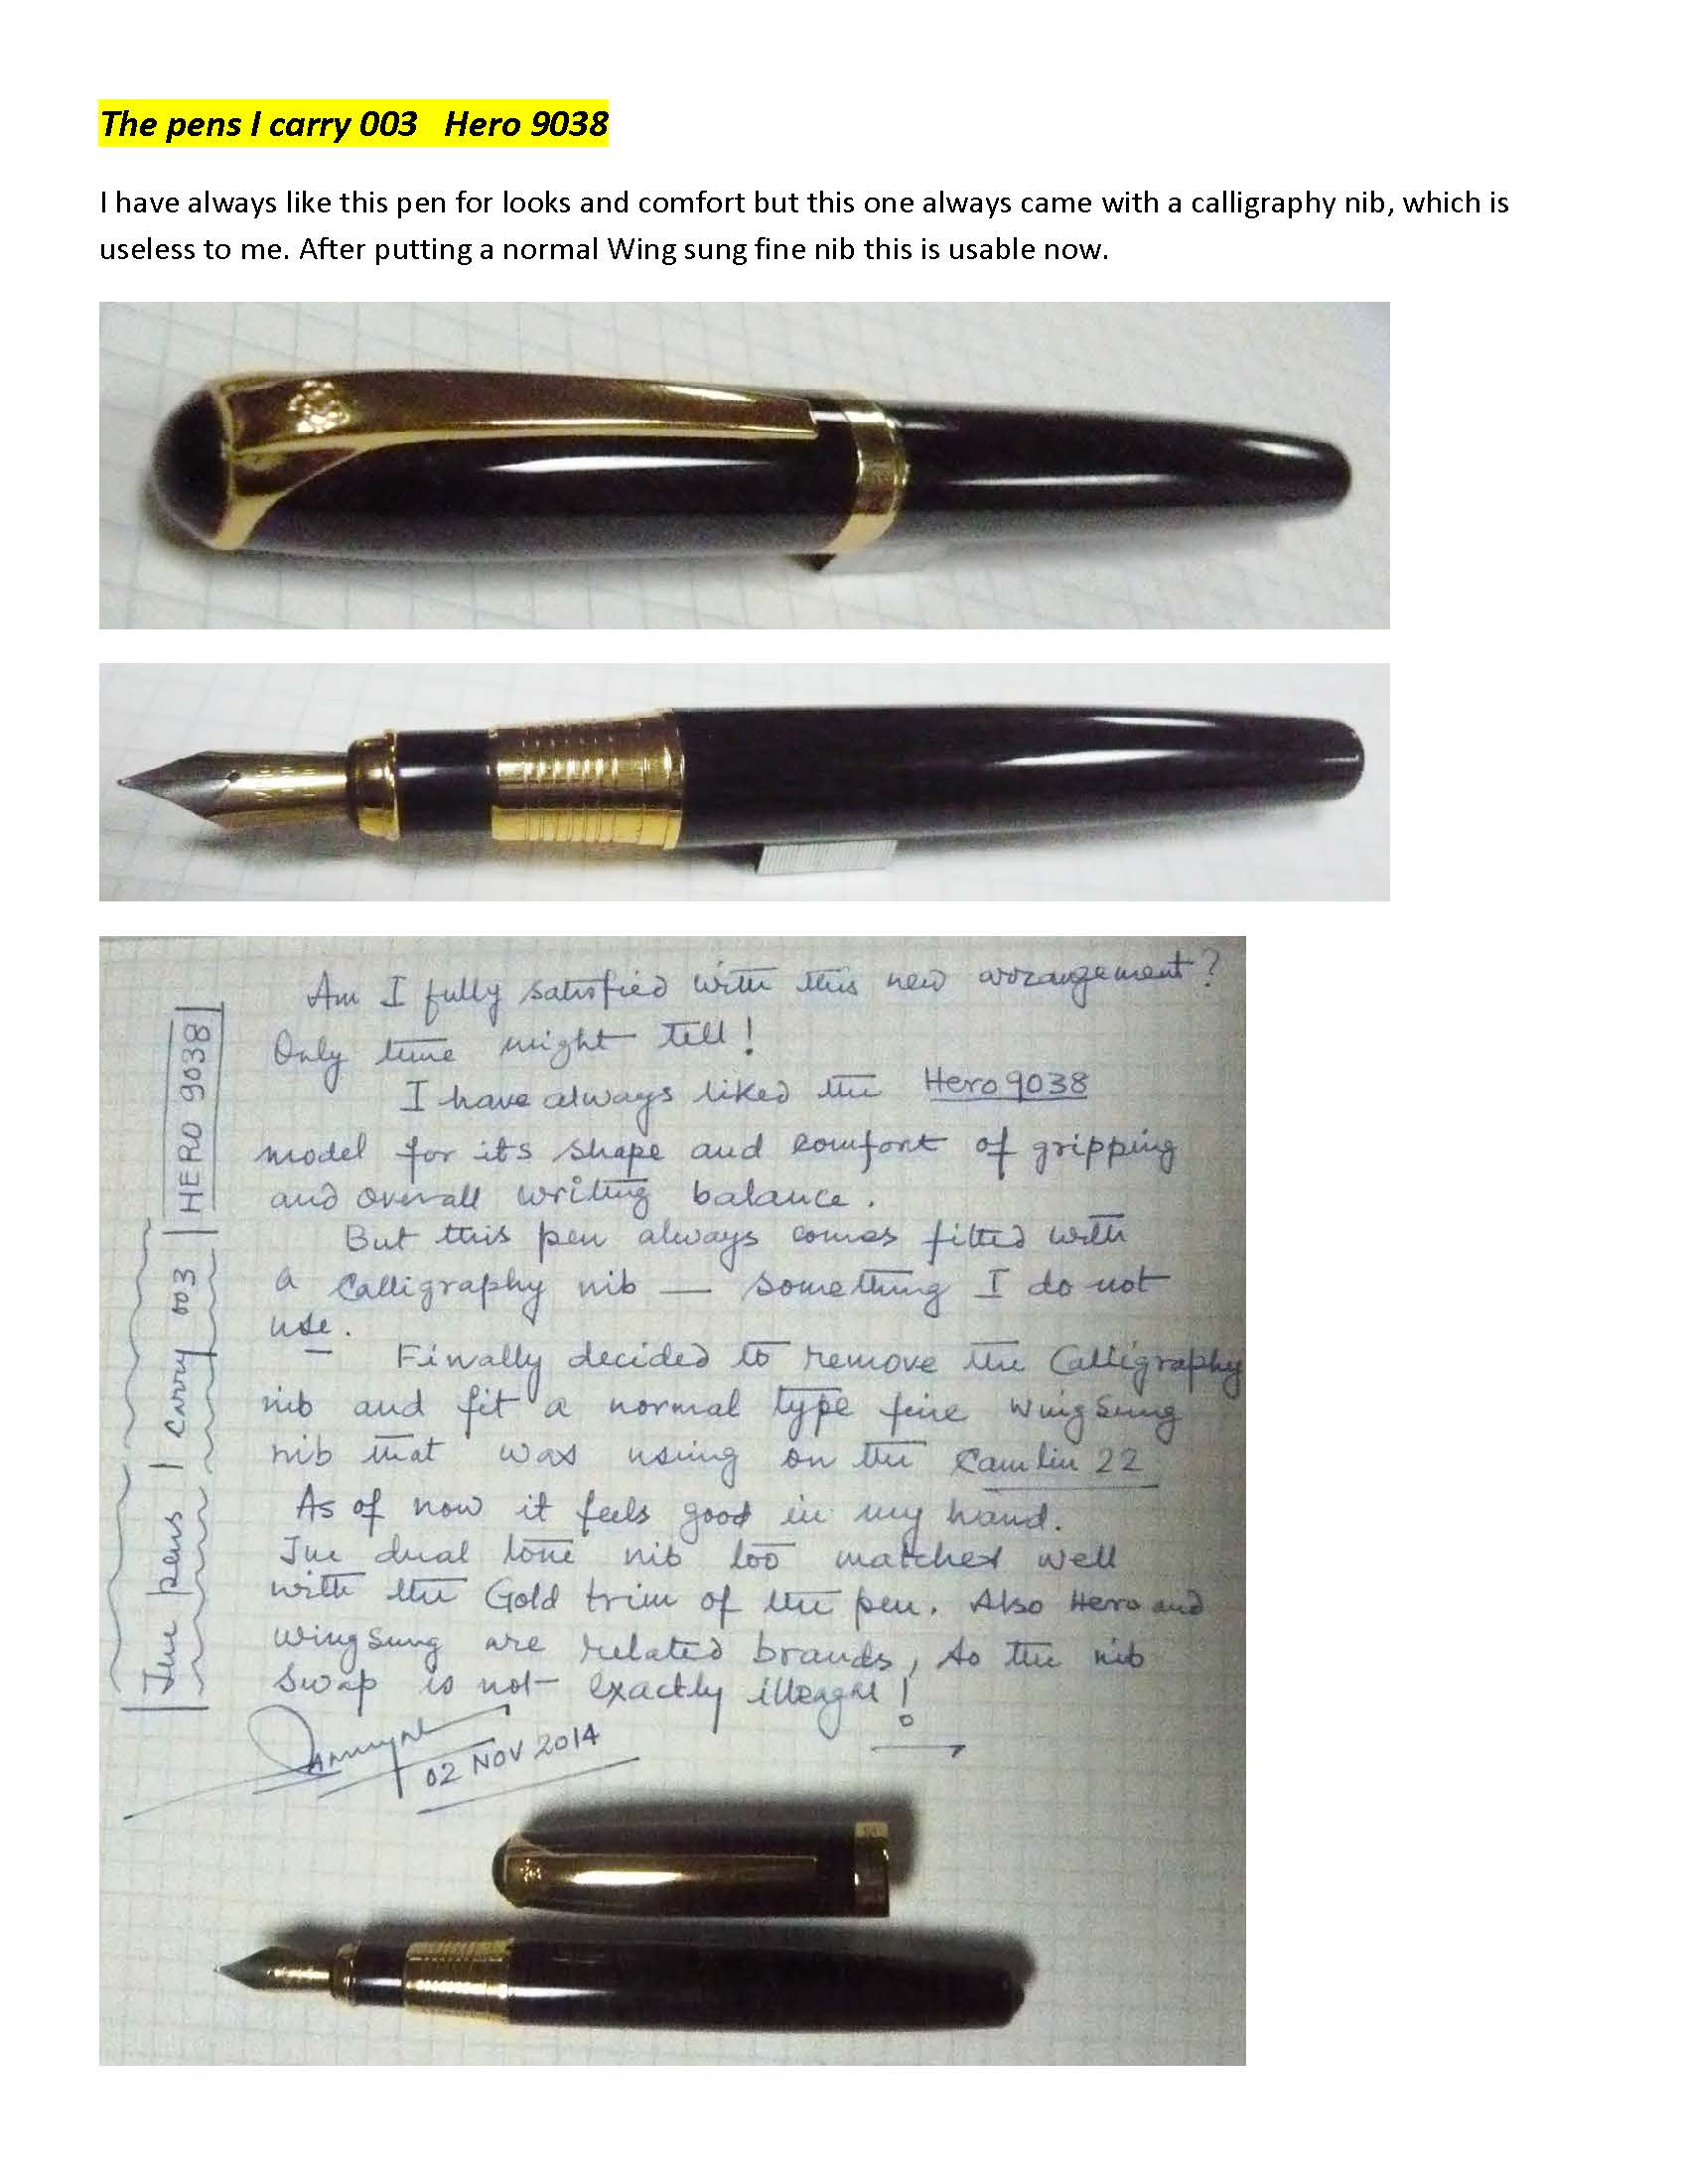 The pens I carry 003 Hero 9038
I have always like this pen for looks and comfort but this one always came with a calligraphy nib, which is
useless to me. After putting a normal Wing sung fine nib this is usable now.
The pens I carry 003 HERO 9038
Am I fully satisfied with this new arrangement?
Only time might tell!
I have always liked the Hero 9038
model for its shape and comfort of gripping
and overall writing balance.
But this pen always comes fitted with
a Calligraphy nib — something I do not
use.
Finally decided to remove the Calligraphy
nib and fit a normal type fine WingSung
nib that was using on the Camlin 22
As of now it feels good in my hand.
The dual tone nib too matches well
with the Gold trim of the pen. Also Hero and
WingSung are related brands, so the nib
swap is not exactly illeagal!
02 NOV 2014